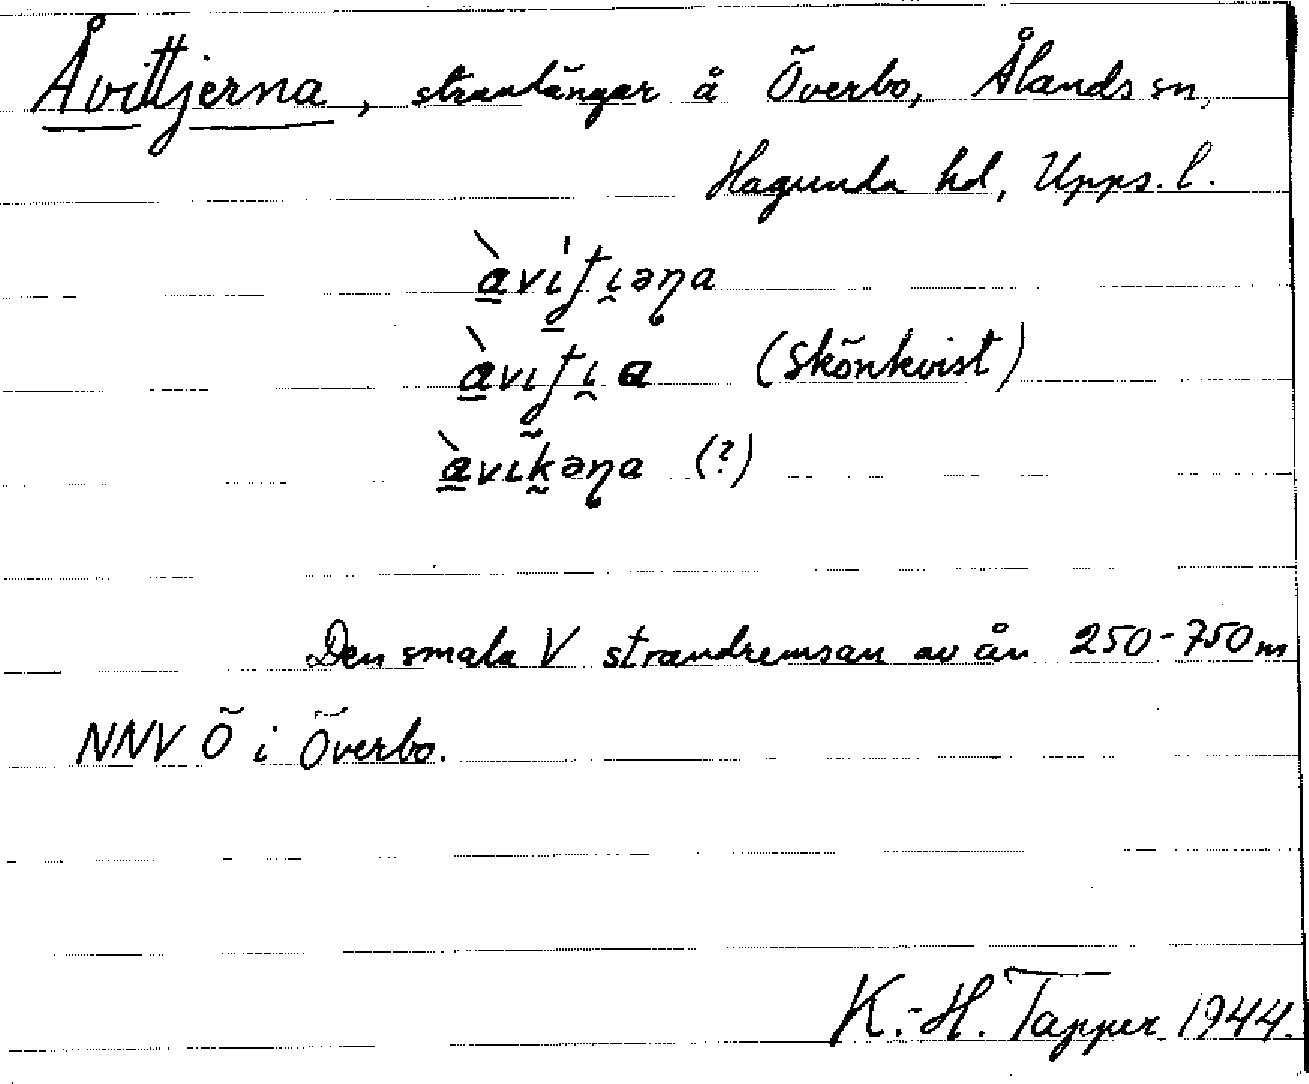 Åvittjerna, strandängar å Överbo, Ålands sn,
Hagunda hd, Upps. l.
(Skönkvist)
(?)
Den smala V strandremsan av ån 250-750 m
NNV Ö i Överbo.
K.-H. Tapper 1944.